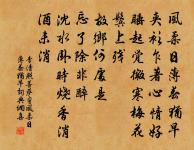 風柔日薄春猶早
夾衫乍著心情好
睡起覺微寒梅花
鬢上殘
故鄉何處是
忘了除非醉
沈水臥時燒香消
酒未消
李清照菩薩蠻風柔日
薄春猶早詞典網